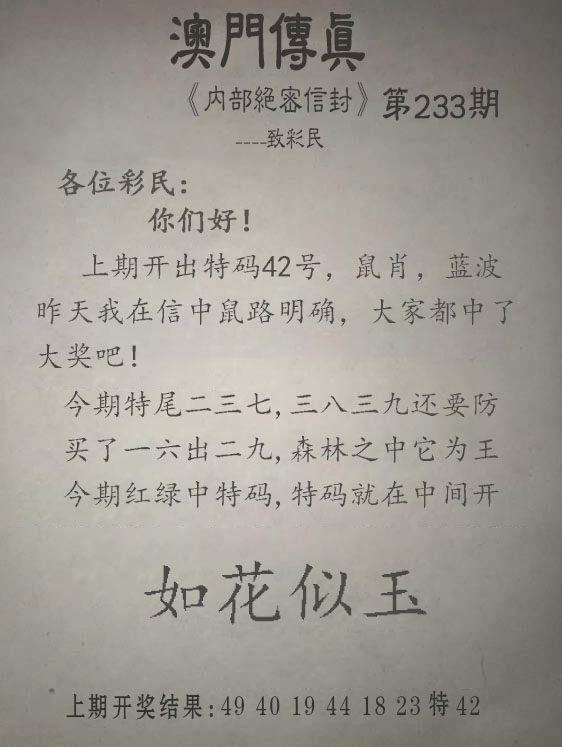 澳門傳真
《内部絕密信封》第233期
----致彩民
各位彩民：
你们好！
上期开出特码42号，鼠肖，蓝波
昨天我在信中鼠路明确，大家都中了
大奖吧！
今期特尾二三七,三八三九还要防
买了一六出二九,森林之中它为王
今期红绿中特码,特码就在中间开
如花似玉
上期开奖结果:49 40 19 44 18 23特42